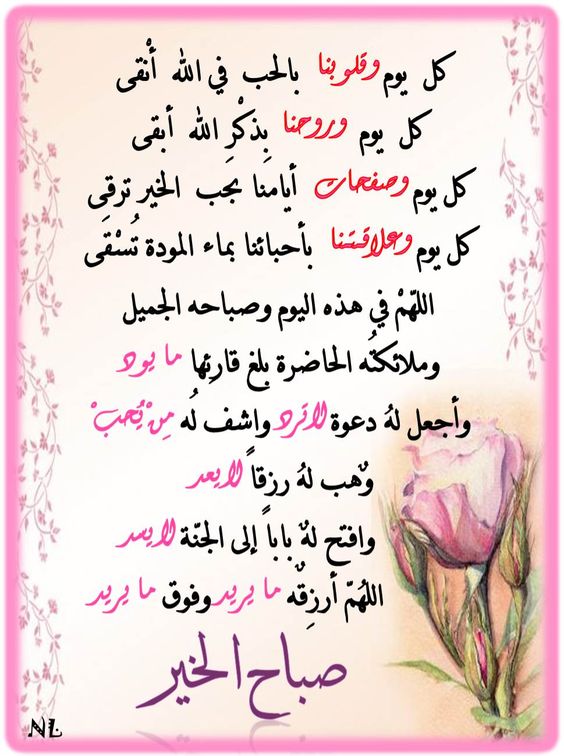 كل يوم وقلوبنا بالحب في الله أنقى
كل يوم وروحنا بِذكْرِ الله أبقى
كل يوم وصفحات أيامنا بحب الخير ترقى
كل يوم وعلاقتنا بأحبائنا بماء المودة تُسْقَى
اللهّمْ في هذه اليوم وصباحه الجميل
وملائكتُه الحاضرة بلغ قارِئها ما يود
وأجعل لهُ دعوة لاترد واشف لُه مِنْ يُحبْ
وٌهب لهُ رزقاً لايعد
وافتح لهٌ باباً إلى الجنّة لايسد
اللهُمّ أرزِقٌه ما يريد وفوق ما يريد
صباح الخير
NL